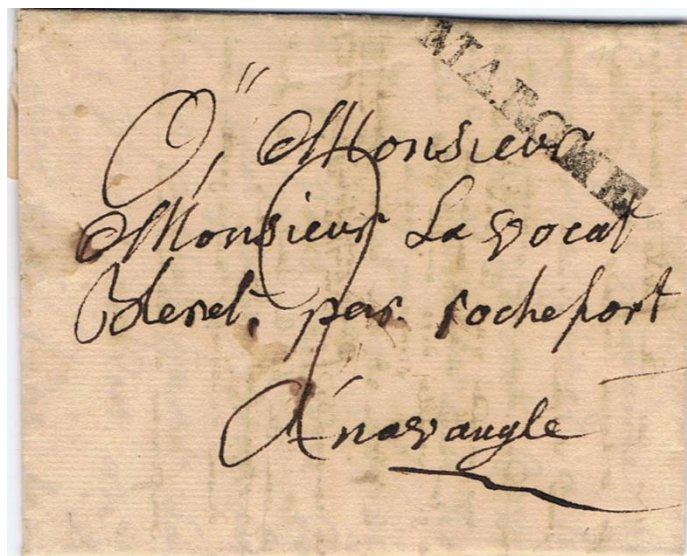 MARCHE
Monsieur
Monsieur Lavocat
par rochefort
A navaugle